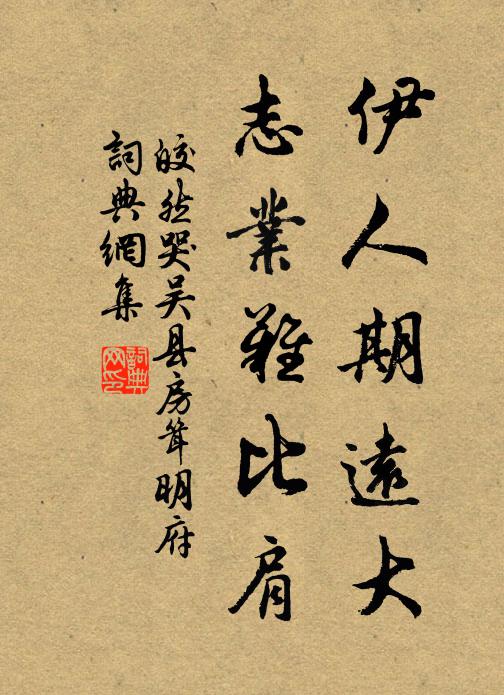 伊人期遠大
志業難比肩
皎然哭吴县房耸明府
詞典網集
詞典网印